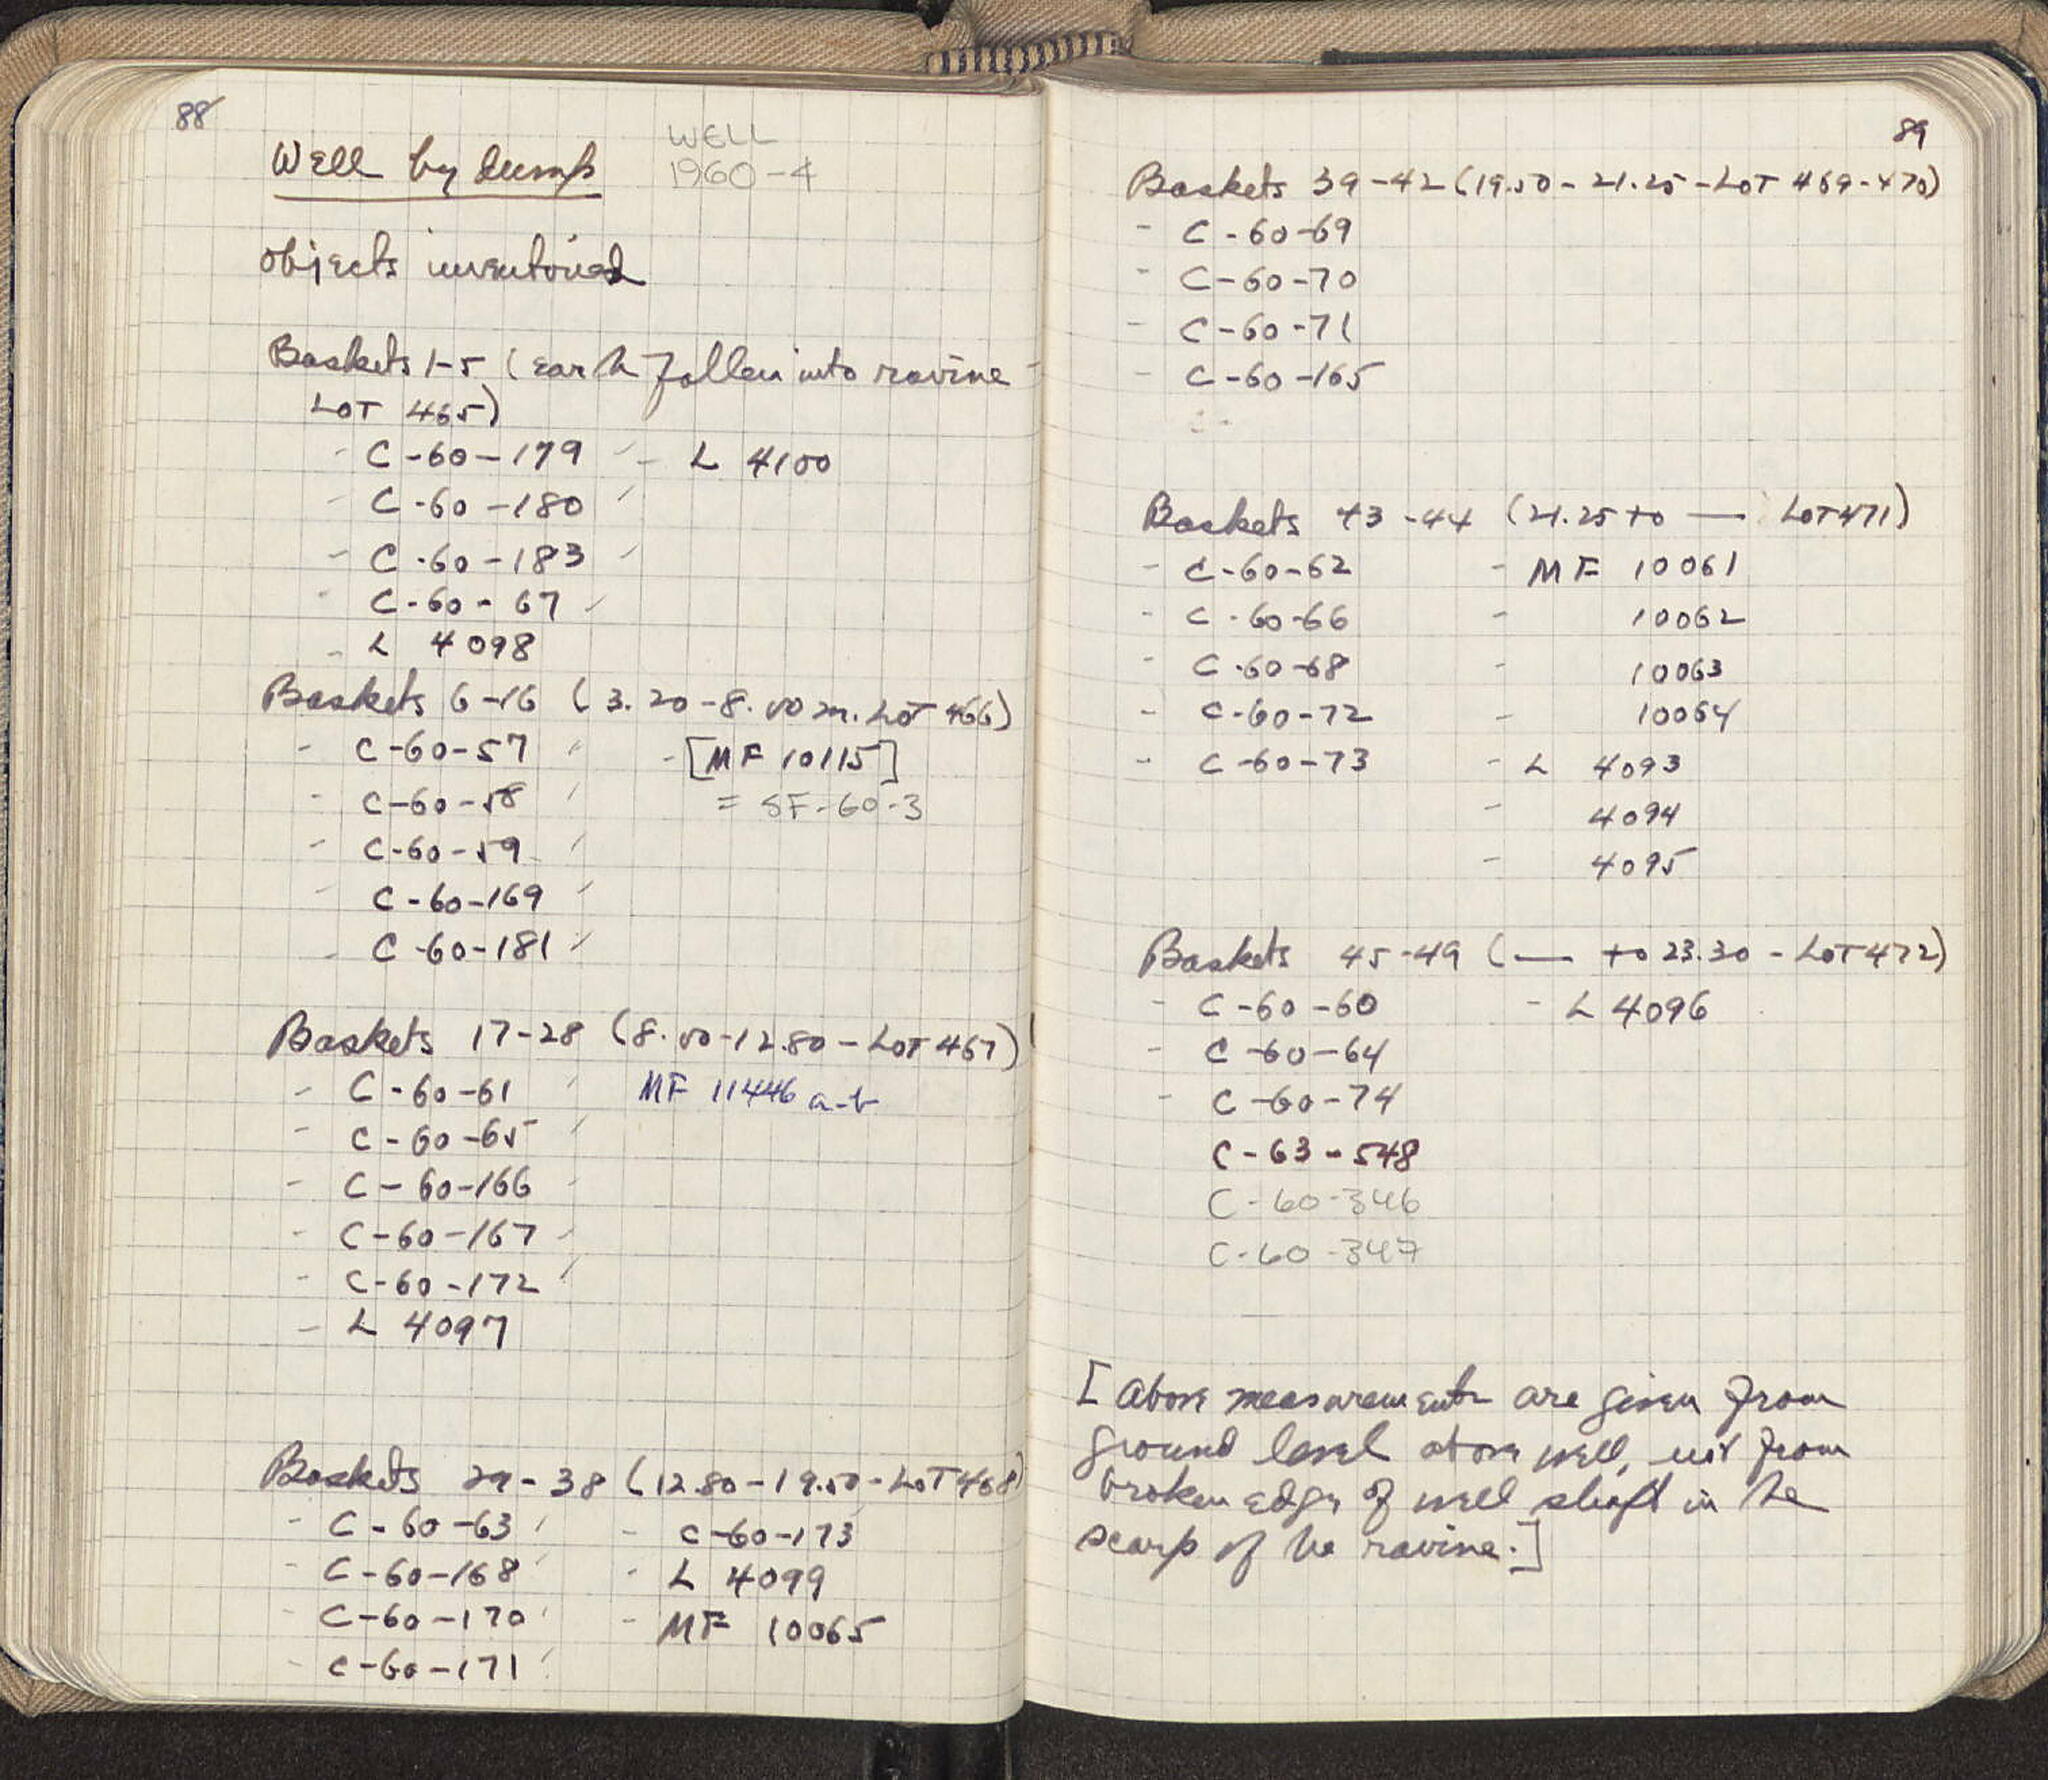 88
Well by dump WELL
1960-4
objects inventoried
Baskets 1-5 (earth fallen into ravine -
LOT 465)
- C-60-179 - L 4100
- C-60-180
- C-60-183
- C-60-67
- L 4098
Baskets 6-16 (3.20-8.00 m. LOT 466)
- C-60-57 - [MF 10115]
- C-60-58 = SF-60-3
- C-60-59
- C-60-169
- C-60-181
Baskets 17-28 (8.00-12.80 - LOT 467)
- C-60-61 MF 11446 a-b
- C-60-65
- C-60-166
- C-60-167
- C-60-172
- L 4097
Baskets 29-38 (12.80-19.50 - LOT 468)
- C-60-63 - C-60-173
- C-60-168 - L 4099
- C-60-170 - MF 10065
- C-60-171
89
Baskets 39-42 (19.50-21.25 - LOT 469-470)
- C-60-69
- C-60-70
- C-60-71
- C-60-165
Baskets 43-44 (21.25 to — LOT 471)
- C-60-62 - MF 10061
- C-60-66 - 10062
- C-60-68 - 10063
- C-60-72 - 10064
- C-60-73 - L 4093
- 4094
- 4095
Baskets 45-49 (— to 23.30 - LOT 472)
- C-60-60 - L 4096
- C-60-64
- C-60-74
C-63-548
C-60-346
C-60-347
[Above measurements are given from
ground level above well, not from
broken edge of well shaft in the
scarp of the ravine.]